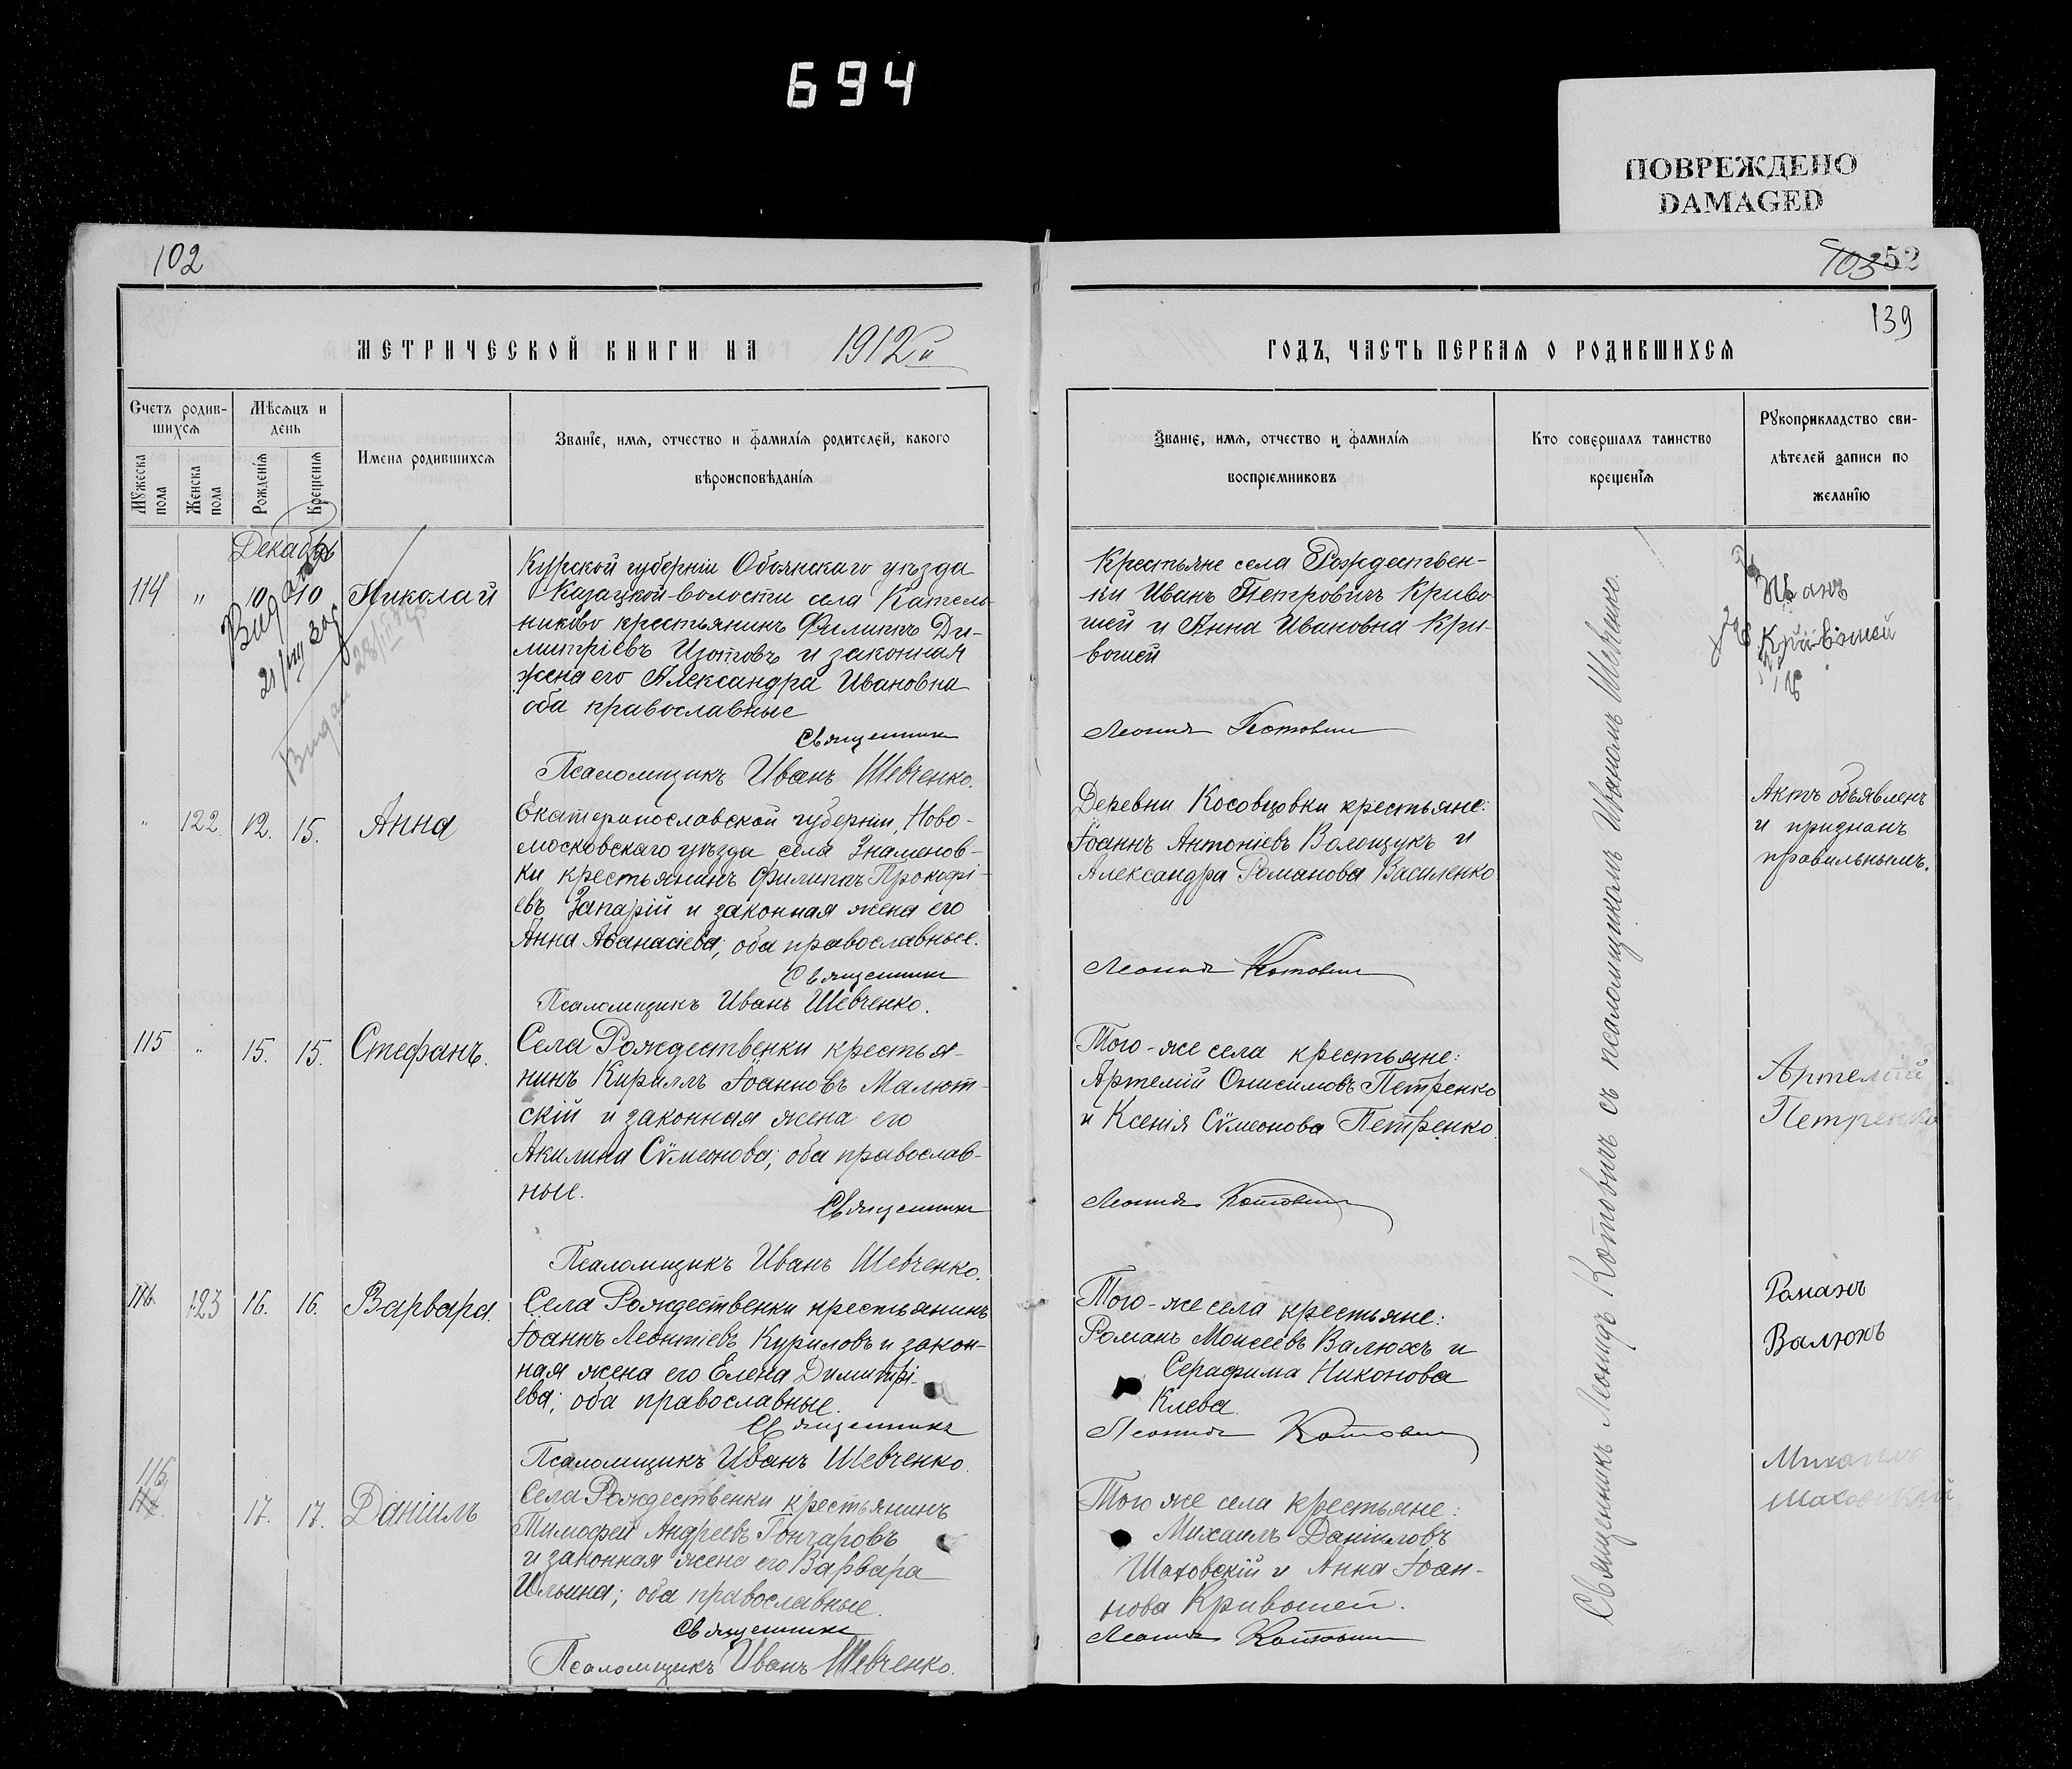 694
ПОВРЕЖДЕНО
DAMAGED
102
МЕТРИЧЕСКОЙ КНИГИ НА 1912й
Счетъ родив-
шихся
Мѣсяцъ и
день
Имена родившихся
Званіе, имя, отчество и фамилія родителей, какого
вѣроисповѣданія
Мужеска
пола
Женска
пола
Рожденія
Крещенія
Декабрь
114 " 10 10 Николай
Курской губерніи Обоянскаго уѣзда
Казацкой волости села Котель-
никово крестьянинъ Филиппъ Ди-
митріевъ Изотовъ и законная
жена его Александра Ивановна
оба православные
Священникъ
Псаломщикъ Иванъ Шевченко.
" 122. 12. 15. Анна
Екатеринославской губерніи, Ново-
московскаго уѣзда села Знаменов-
ки крестьянинъ Филиппъ Прокофі-
евъ Запарій и законная жена его
Анна Аѳанасіева; оба православные.
Священникъ
Псаломщикъ Иванъ Шевченко.
115 " 15. 15. Стефанъ.
Села Рождественки крестья-
нинъ Кириллъ Іоанновъ Малют-
скій и законная жена его
Акилина Сѵмеонова; оба православ-
ные.
Священникъ
Псаломщикъ Иванъ Шевченко.
116 123 16. 16. Варвара.
Села Рождественки крестьянинъ
Іоаннъ Леонтіевъ Куриловъ и закон-
ная жена его Елена Димитрі-
ева; оба православные.
Священникъ
Псаломщикъ Иванъ Шевченко.
116
117. 17. 17. Даніилъ
Села Рождественки крестьянинъ
Тимофей Андреевъ Гончаровъ
и законная жена его Варвара
Ильина; оба православные.
Священникъ
Псаломщикъ Иванъ Шевченко.
103 52
139
ГОДЪ, ЧАСТЬ ПЕРВАЯ О РОДИВШИХСЯ
Званіе, имя, отчество и фамилія
воспріемниковъ
Кто совершалъ таинство
крещенія
Рукоприкладство сви-
дѣтелей записи по
желанію
Крестьяне села Рождествен-
ки Иванъ Петровичъ Криво
шей и Анна Ивановна Кри-
вошей
Леонидъ Котовичъ
Иванъ
Кривошей
Деревни Косовцовки крестьяне:
Іоаннъ Антоніевъ Волощукъ и
Александра Романова Василенко
Леонидъ Котовичъ
Актъ объявленъ
и признанъ
правильнымъ.
Того-же села крестьяне:
Артемій Онисимовъ Петренко
и Ксенія Сѵмеонова Петренко.
Леонидъ Котовичъ
Артемій
Петренко
Того-же села крестьяне:
Романъ Моисеевъ Валюхъ и
Серафима Никонова
Клева.
Леонидъ Котовичъ
Романъ
Валюхъ
Того же села крестьяне:
Михаилъ Даніиловъ
Шаховскій и Анна Іоан-
нова Кривошей.
Леонидъ Котовичъ
Михаилъ
Шаховской
Священникъ Леонидъ Котовичъ съ псаломщикомъ Иваномъ Шевченко.